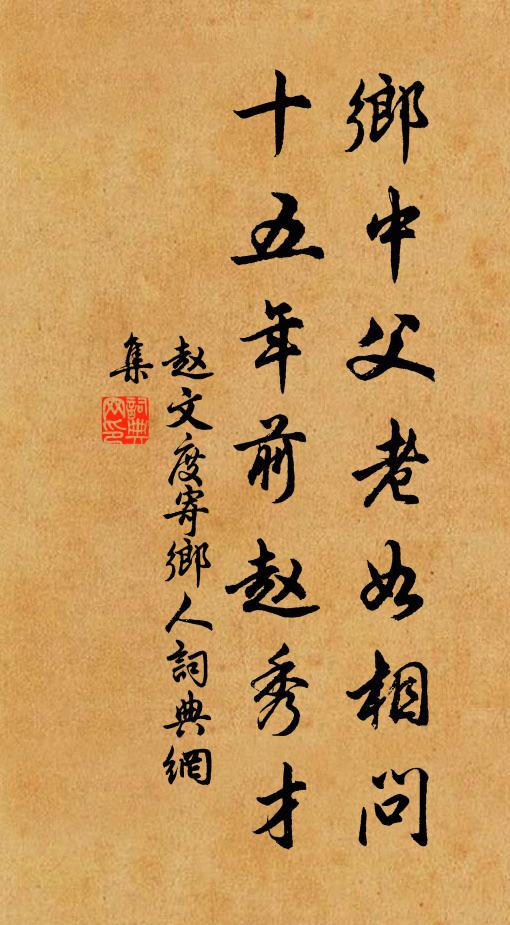 鄉中父老如相問
十五年前赵秀才
赵文度寄鄉人詞典網
集
詞典網印